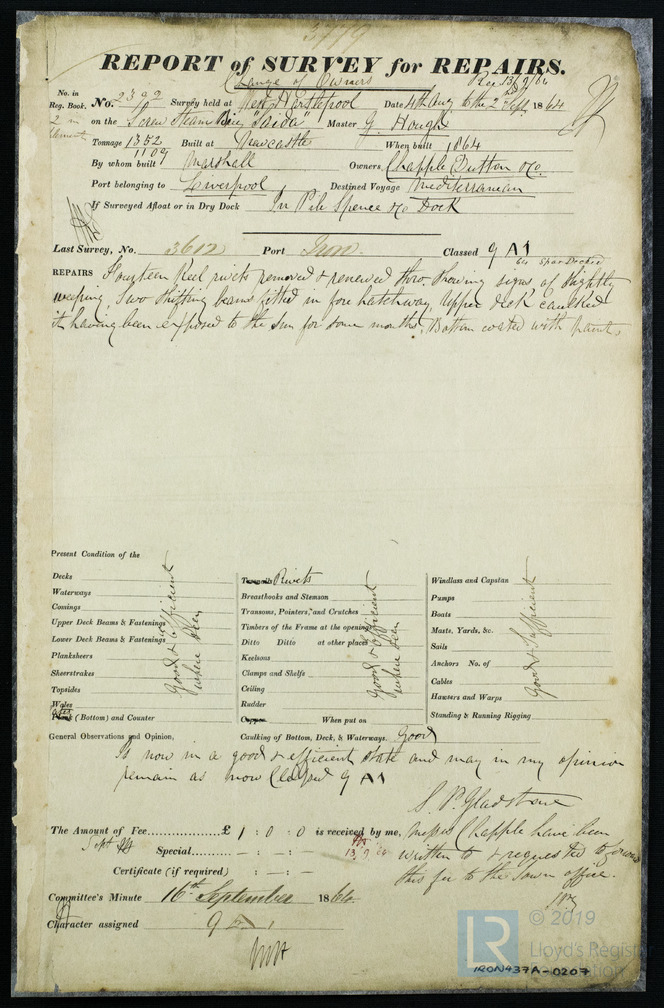 3779
REPORT of SURVEY for REPAIRS.
Change of Owners Rec 13/9/64
No. in Reg. Book. No. 2392 Survey held at West Hartlepool Date 4th Aug to the 2nd Sept 1864
2 in on the Screw Steam "Saida" Master G. Hough
Tonnage 1352 Built at Newcastle When built 1864
1109
By whom built Marshall Owners Chapple Dutton & Co.
Port belonging to Liverpool Destined Voyage Mediterranean
If Surveyed Afloat or in Dry Dock In Pile Spence & Co Dock
Last Survey, No. 3612 Port Iron Classed 9 A1
Spar Decked
REPAIRS Fourteen Keel rivets removed & renewed thro showing signs of slightly
weeping, Two shifting beams fitted in fore hatchway, Upper deck caulked
it having been exposed to the sun for some months, Bottom coated with paint.
Present Condition of the
Decks
Waterways
Comings
Upper Deck Beams & Fastenings
Lower Deck Beams & Fastenings
Planksheers
Sheerstrakes
Topsides
Wales
Plank (Bottom) and Counter
Good & efficient
when seen
Treenails Rivets
Breasthooks and Stemson
Transoms, Pointers, and Crutches
Timbers of the Frame at the openings
Ditto Ditto at other places
Keelsons
Clamps and Shelfs
Ceiling
Rudder
Copper When put on
Caulking of Bottom, Deck, & Waterways. Good
Good & efficient
when seen
Windlass and Capstan
Pumps
Boats
Masts, Yards, &c.
Sails
Anchors No. of
Cables
Hawsers and Warps
Standing & Running Rigging
Good & Sufficient
General Observations and Opinion,
Is now in a good & efficient state and may in my opinion
remain as now Classed 9 A1
S. P. Gladstone
The Amount of Fee £ 1 : 0 : 0 is received by me, Messrs Chapple have been
Special - : - : - 13/9/64 written to & requested to forward
Certificate (if required) : - : - this fee to the Town office.
Committee's Minute 16th September 1864
Character assigned 9 A 1
© 2019
Lloyd's Register
Foundation
LR
IRON437A-0207